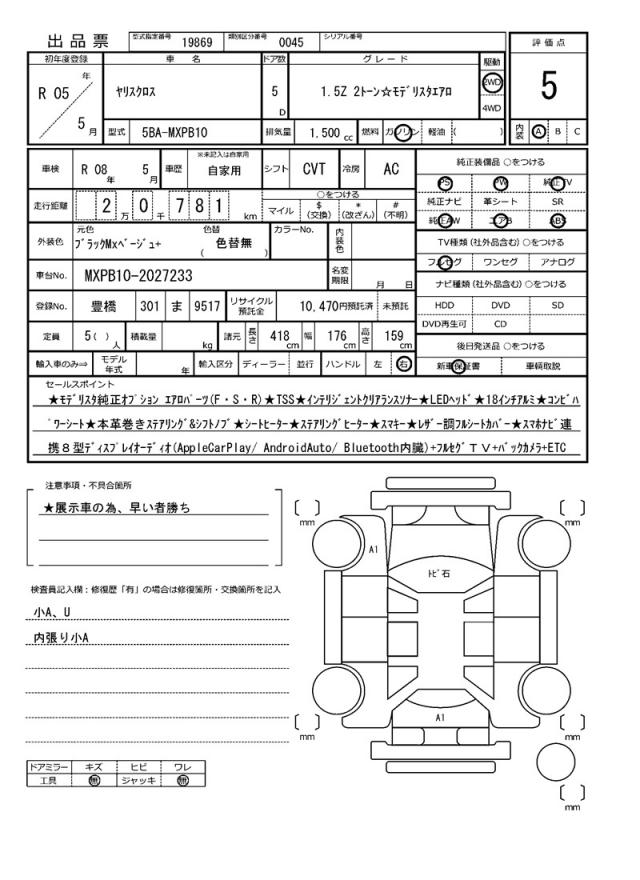 出品票 型式指定番号 19869 類別区分番号 0045 シリアル番号
初年度登録 車名 ドア数 グレード 駆動 評価点
R 05 年 5 月 ヤリスクロス 5 D 1.5Z 2トーン☆モデリスタエアロ 2WD 4WD 5
型式 5BA-MXPB10 排気量 1.500 cc 燃料 ガソリン 軽油 ( ) 内装 A B C
車検 R 08 年 5 月 車歴 ※未記入は自家用 自家用 シフト CVT 冷房 AC 純正装備品 ○をつける
PS PW 純正TV
走行距離 2 万 0 千 781 km ○をつける マイル $ (交換) * (改ざん) # (不明) 純正ナビ 革シート SR
純正AW エアB ABS
外装色 元色 ブラックMxベージュ+ 色替 ( 色替無 ) カラーNo. 内装色 TV種類 (社外品含む) ○をつける
フルセグ ワンセグ アナログ
車台No. MXPB10-2027233 名変期限 月 日 ナビ種類 (社外品含む) ○をつける
登録No. 豊橋 301 ま 9517 リサイクル預託金 10,470円預託済 未預託 HDD DVD SD
DVD再生可 CD
定員 5( ) 人 積載量 kg 諸元 長さ 418 cm 幅 176 cm 高さ 159 cm 後日発送品 ○をつける
輸入車のみ⇒ モデル年式 年 輸入区分 ディーラー 並行 ハンドル 左 右 新車保証書 車輌取説
セールスポイント
★モデリスタ純正オプション エアロパーツ(F・S・R)★TSS★インテリジェントクリアランスソナー★LEDヘッド★18インチアルミ★コンビハ
゚ワーシート★本革巻きステアリング&シフトノブ★シートヒーター★ステアリングヒーター★スマキー★レザー調フルシートカバー★スマホナビ連
携8型ディスプレイオーディオ(AppleCarPlay/ AndroidAuto/ Bluetooth内臓)+フルセグTV+バックカメラ+ETC
注意事項・不具合箇所
★展示車の為、早い者勝ち
検査員記入欄:修復歴「有」の場合は修復箇所・交換箇所を記入
小A、U
内張り小A
ドアミラー キズ ヒビ ワレ
工具 無 ジャッキ 無
[ ] mm [ ] mm
A1
トビ石
A1
[ ] mm [ ] mm
[ ] mm